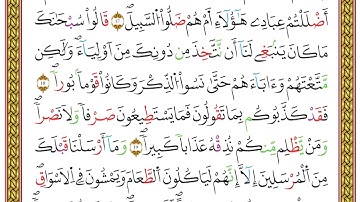 أَضْلَلْتُمْ عِبَادِى هَٰٓؤُلَآءِ أَمْ هُمْ ضَلُّوا۟ ٱلسَّبِيلَ ١٧ قَالُوا۟ سُبْحَٰنَكَ
مَا كَانَ يَنۢبَغِى لَنَآ أَن نَّتَّخِذَ مِن دُونِكَ مِنْ أَوْلِيَآءَ وَلَٰكِن
مَّتَّعْتَهُمْ وَءَابَآءَهُمْ حَتَّىٰ نَسُوا۟ ٱلذِّكْرَ وَكَانُوا۟ قَوْمًۢا بُورًا ١٨
فَقَدْ كَذَّبُوكُم بِمَا تَقُولُونَ فَمَا يَسْتَطِيعُونَ صَرْفًا وَلَا نَصْرًا
وَمَن يَظْلِم مِّنكُمْ نُذِقْهُ عَذَابًا كَبِيرًا ١٩ وَمَآ أَرْسَلْنَا قَبْلَكَ
مِنَ ٱلْمُرْسَلِينَ إِلَّآ إِنَّهُمْ لَيَأْكُلُونَ ٱلطَّعَامَ وَيَمْشُونَ فِى ٱلْأَسْوَاقِ